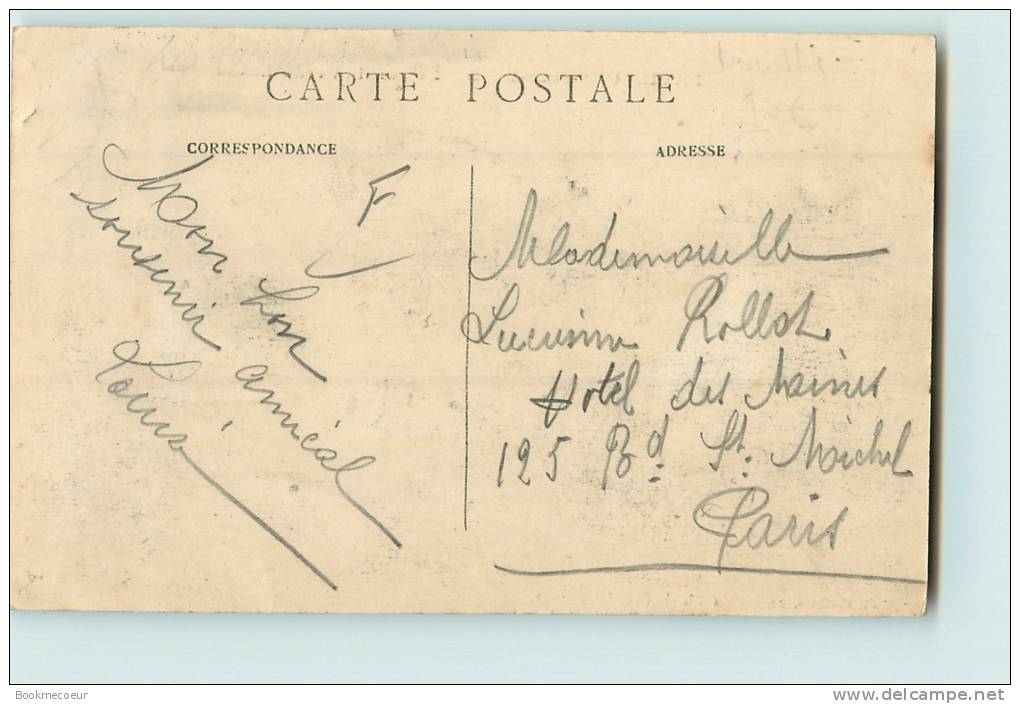 CARTE POSTALE
CORRESPONDANCE
Mon bon
souvenir
amical
Louis
ADRESSE
Mademoiselle
Lucienne Rollot
Hotel des Mines
125 Bd. St. Michel
Paris
Bookmecoeur
delcampe.net